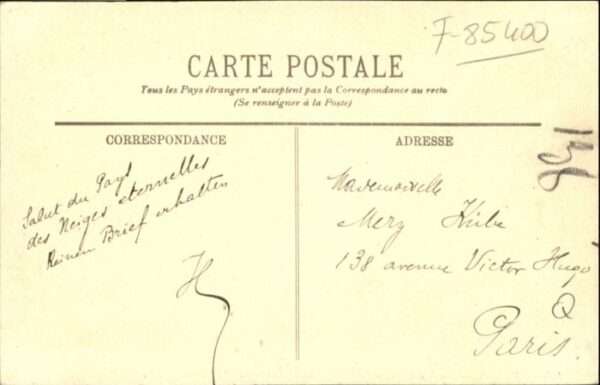 F-85400
CARTE POSTALE
Tous les Pays étrangers n'acceptent pas la Correspondance au recto
(Se renseigner à la Poste)
CORRESPONDANCE
Salut du Pays
des Neiges éternelles
Keinen Brief erhalten
H
ADRESSE
Mademoiselle
Merz
138 avenue Victor Hugo
Paris